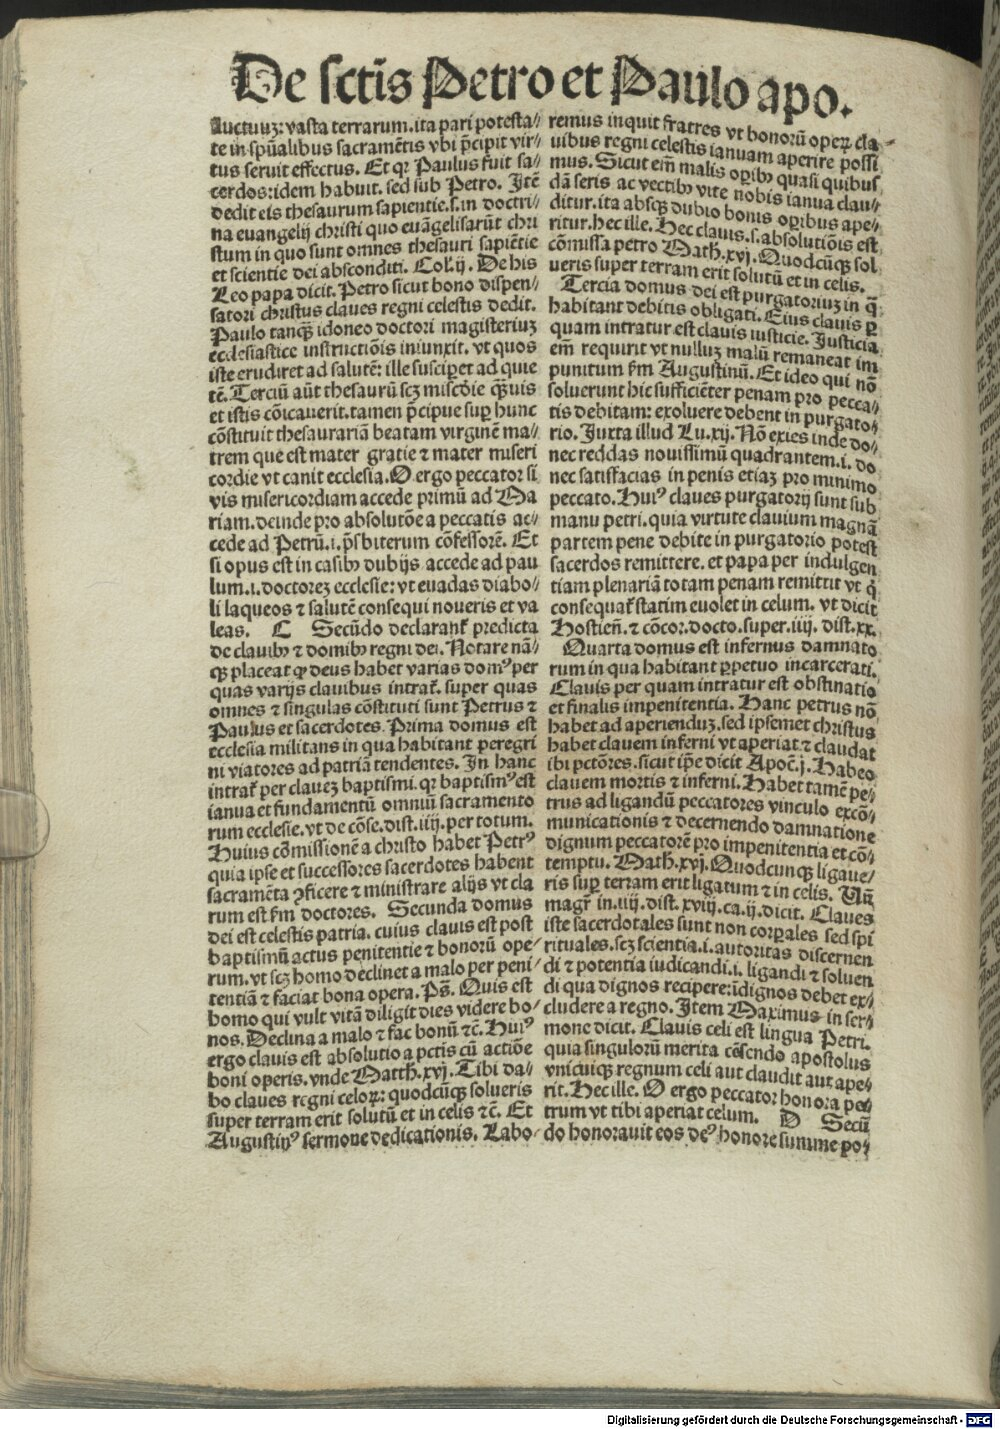 De sctīs Petro et Paulo apo.
fluctuuȝ: vasta terrarum. ita pari potesta⸗
te in spūalibus sacramētis vbi p̄cipit vir⸗
tus seruit effectus. Et qꝛ Paulus fuit sa⸗
cerdos: idem habuit. sed sub Petro. Itē
dedit eis thesaurum sapientie. s. in doctri⸗
na euangelij christi quo euāgelisarūt chri
stum in quo sunt omnes thesauri sapiētie
et scientie dei absconditi. Col. ij. De his
Leo papa dicit. Petro sicut bono dispen⸗
satori christus claues regni celestis dedit.
Paulo tanqȝ idoneo doctori magisteriuȝ
ecclesiastice instructiōis iniunxit. vt quos
iste erudiret ad salutē: ille susciꝑet ad quie
tē. Terciū aūt thesaurū scȝ mīscdie qȝuis
et istis cōicauerit. tamen p̄cipue suꝑ hunc
cōstituit thesaurariā beatam virginē ma⸗
trem que est mater gratie ⁊ mater miseri
cordie vt canit ecclesia. O ergo peccator si
vis misericordiam accede primū ad Ma
riam. deinde pro absolutōe a peccatis ac⸗
cede ad Petrū. i. p̄sbiterum cōfessorē. Et
si opus est in casibȝ dubijs accede ad pau
lum. i. doctoreȝ ecclesie: vt euadas diabo⸗
li laqueos ⁊ salutē consequi noueris et va
leas. C Secūdo declaranť predicta
de clauibȝ ⁊ domibȝ regni dei. Notare nā⸗
qȝ placeat ꝙ deus habet varias domꝰ per
quas varijs clauibus intrať. super quas
omnes ⁊ singulas cōstituti sunt Petrus ⁊
Paulus et sacerdotes. Prima domus est
ecclesia militans in qua habitant peregri
ni viatores ad patriā tendentes. In hanc
intrať per claueȝ baptismi. qꝛ baptismꝰ est
ianua et fundamentū omniū sacramento
rum ecclesie. vt de cōse. dist. iiij. per totum.
Huius cōmissionē a christo habet Petrꝰ
quia ipse et successores sacerdotes habent
sacramēta ꝯficere ⁊ ministrare alijs vt cla
rum est fm doctores. Secunda domus
dei est celestis patria. cuius clauis est post
baptismū actus penitentie ⁊ bonorū ope⸗
rum. vt scȝ homo declinet a malo per peni⸗
tentiā ⁊ faciat bona opera. Ps̄. Quis est
homo qui vult vitā diligit dies videre bo⸗
nos. Declina a malo ⁊ fac bonū ⁊c̄. Huiꝰ
ergo clauis est absolutio a pctīs cū actiōe
boni operis. vnde Matth. xvj. Tibi da⸗
bo claues regni celoꝝ: quodcūqȝ solueris
super terram erit solutū et in celis ⁊c̄. Et
Augustinꝰ sermone dedicationis. Labo⸗
remus inquit fratres vt bonorū opeꝝ cla
uibus regni celestis ianuam aperire possi
mus. Sicut em̄ malis oꝑibȝ quasi quibus
dā seris ac vectibȝ vite nobis ianua clau⸗
ditur. ita absqȝ dubio bonis oꝑibus ape⸗
ritur. hec ille. Hec clauis. s. absolutiōis est
cōmissa petro Math. xvj. Quodcūqȝ sol
ueris super terram erit solutū et in celis.
Tercia domus dei est purgatoriuȝ in q̄
habitant debitis obligati. Eius clauis ꝑ
quam intratur est clauis iusticie. Justicia
em̄ requirit vt nulluȝ malū remaneat im
punitum fm Augustinū. Et ideo qui nō
soluerunt hic sufficiēter penam pro pecca⸗
tis debitam: exoluere debent in purgato⸗
rio. Juxta illud Lu. xij. Nō exies inde do⸗
nec reddas nouissimū quadrantem. i. do
nec satisfacias in penis etiaȝ pro minimo
peccato. Huiꝰ claues purgatorij sunt sub
manu petri. quia virtute clauium magnā
partem pene debite in purgatorio potest
sacerdos remittere. et papa per indulgen
tiam plenariā totam penam remittit vt q̄
consequať statim euolet in celum. vt dicit
Hostien̄. ⁊ cōcor. docto. super. iiij. dist. xx.
Quarta domus est infernus damnato
rum in qua habitant ꝑpetuo incarcerati.
Clauis per quam intratur est obstinatio
et finalis impenitentia. Hanc petrus nō
habet ad aperienduȝ. sed ipsemet christus
habet clauem inferni vt aperiat ⁊ claudat
ibi pctōres. sicut ip̄e dicit Apoc̄. j. Habeo
clauem mortis ⁊ inferni. Habet tamē pe⸗
trus ad ligandū peccatores vinculo excō⸗
municationis ⁊ decernendo damnatione
dignum peccatorē pro impenitentia et cō⸗
temptu. Math. xvj. Quodcunqȝ ligaue⸗
ris suꝑ terram erit ligatum ⁊ in celis. Vn̄
magr̄ in. iiij. dist. xviij. ca. ij. dicit. Claues
iste sacerdotales sunt non corꝑales sed spi
rituales. scȝ scientia. i. autoritas discernen
di ⁊ potentia iudicandi. i. ligandi ⁊ soluen
di qua dignos recipere: īdignos debet ex⸗
cludere a regno. Item Maximus in ser⸗
mone dicit. Clauis celi est lingua Petri.
quia singulorū merita cēsendo apostolus
vnicuiqȝ regnum celi aut claudit aut ape⸗
rit. Hec ille. O ergo peccator honora pe⸗
trum vt tibi aperiat celum. D Secū
do honorauit eos deꝰ honore summe po⸗
Digitalisierung gefördert durch die Deutsche Forschungsgemeinschaft - DFG